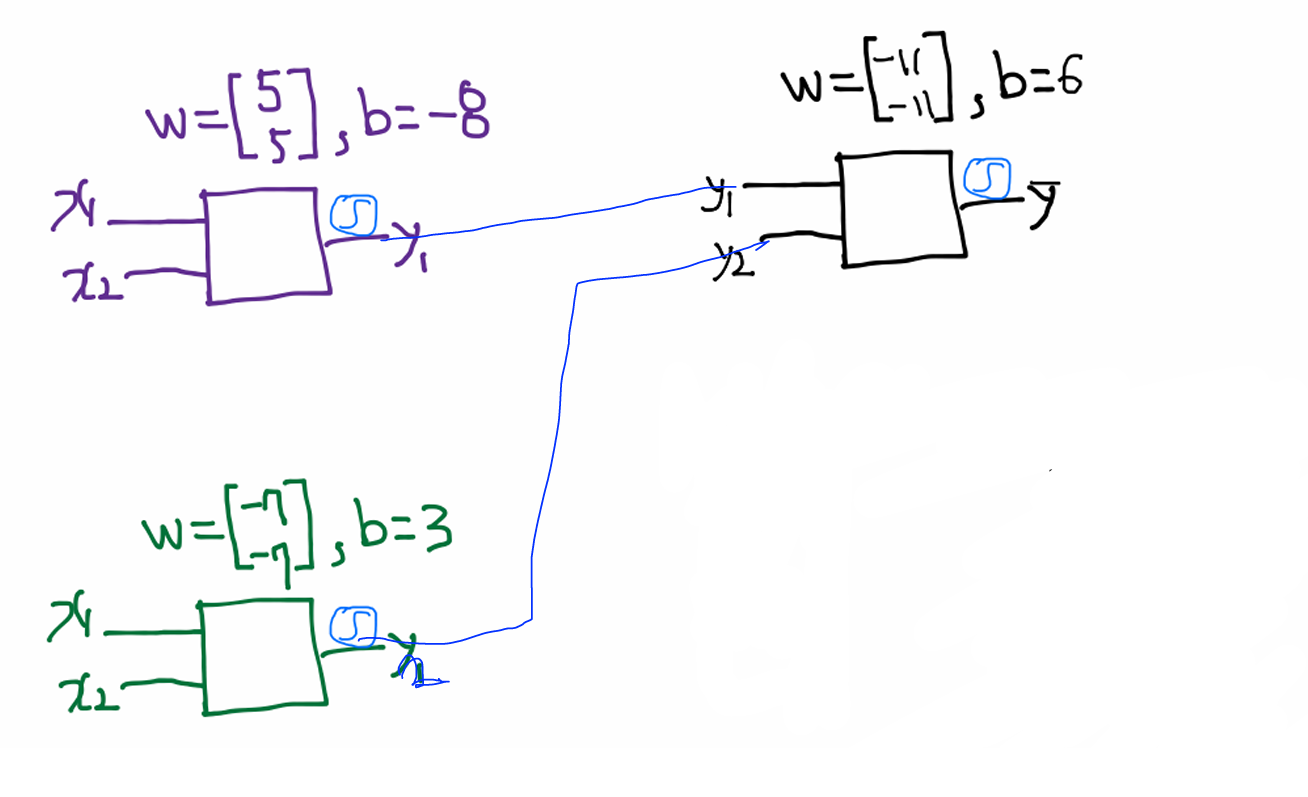 w=[5 5], b=-8
x1
x2
S
y1
w=[-11 -11], b=6
y1
y2
S
ȳ
w=[-7 -7], b=3
x1
x2
S
y2